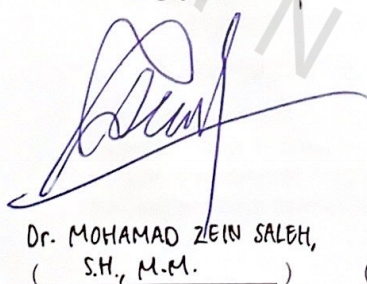 Dr. MOHAMAD ZEIN SALEH,
( S.H., M.M. ) (